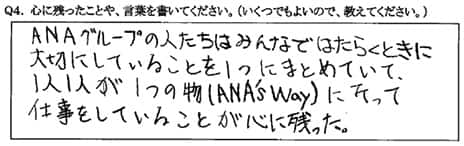 Q4. 心に残ったことや、言葉を書いてください。(いくつでもよいので、教えてください。)
ANAグループの人たちはみんなではたらくときに
大切にしていることを1つにまとめていて、
1人1人が1つの物(ANA'S Way)にそって
仕事をしていることが心に残った。